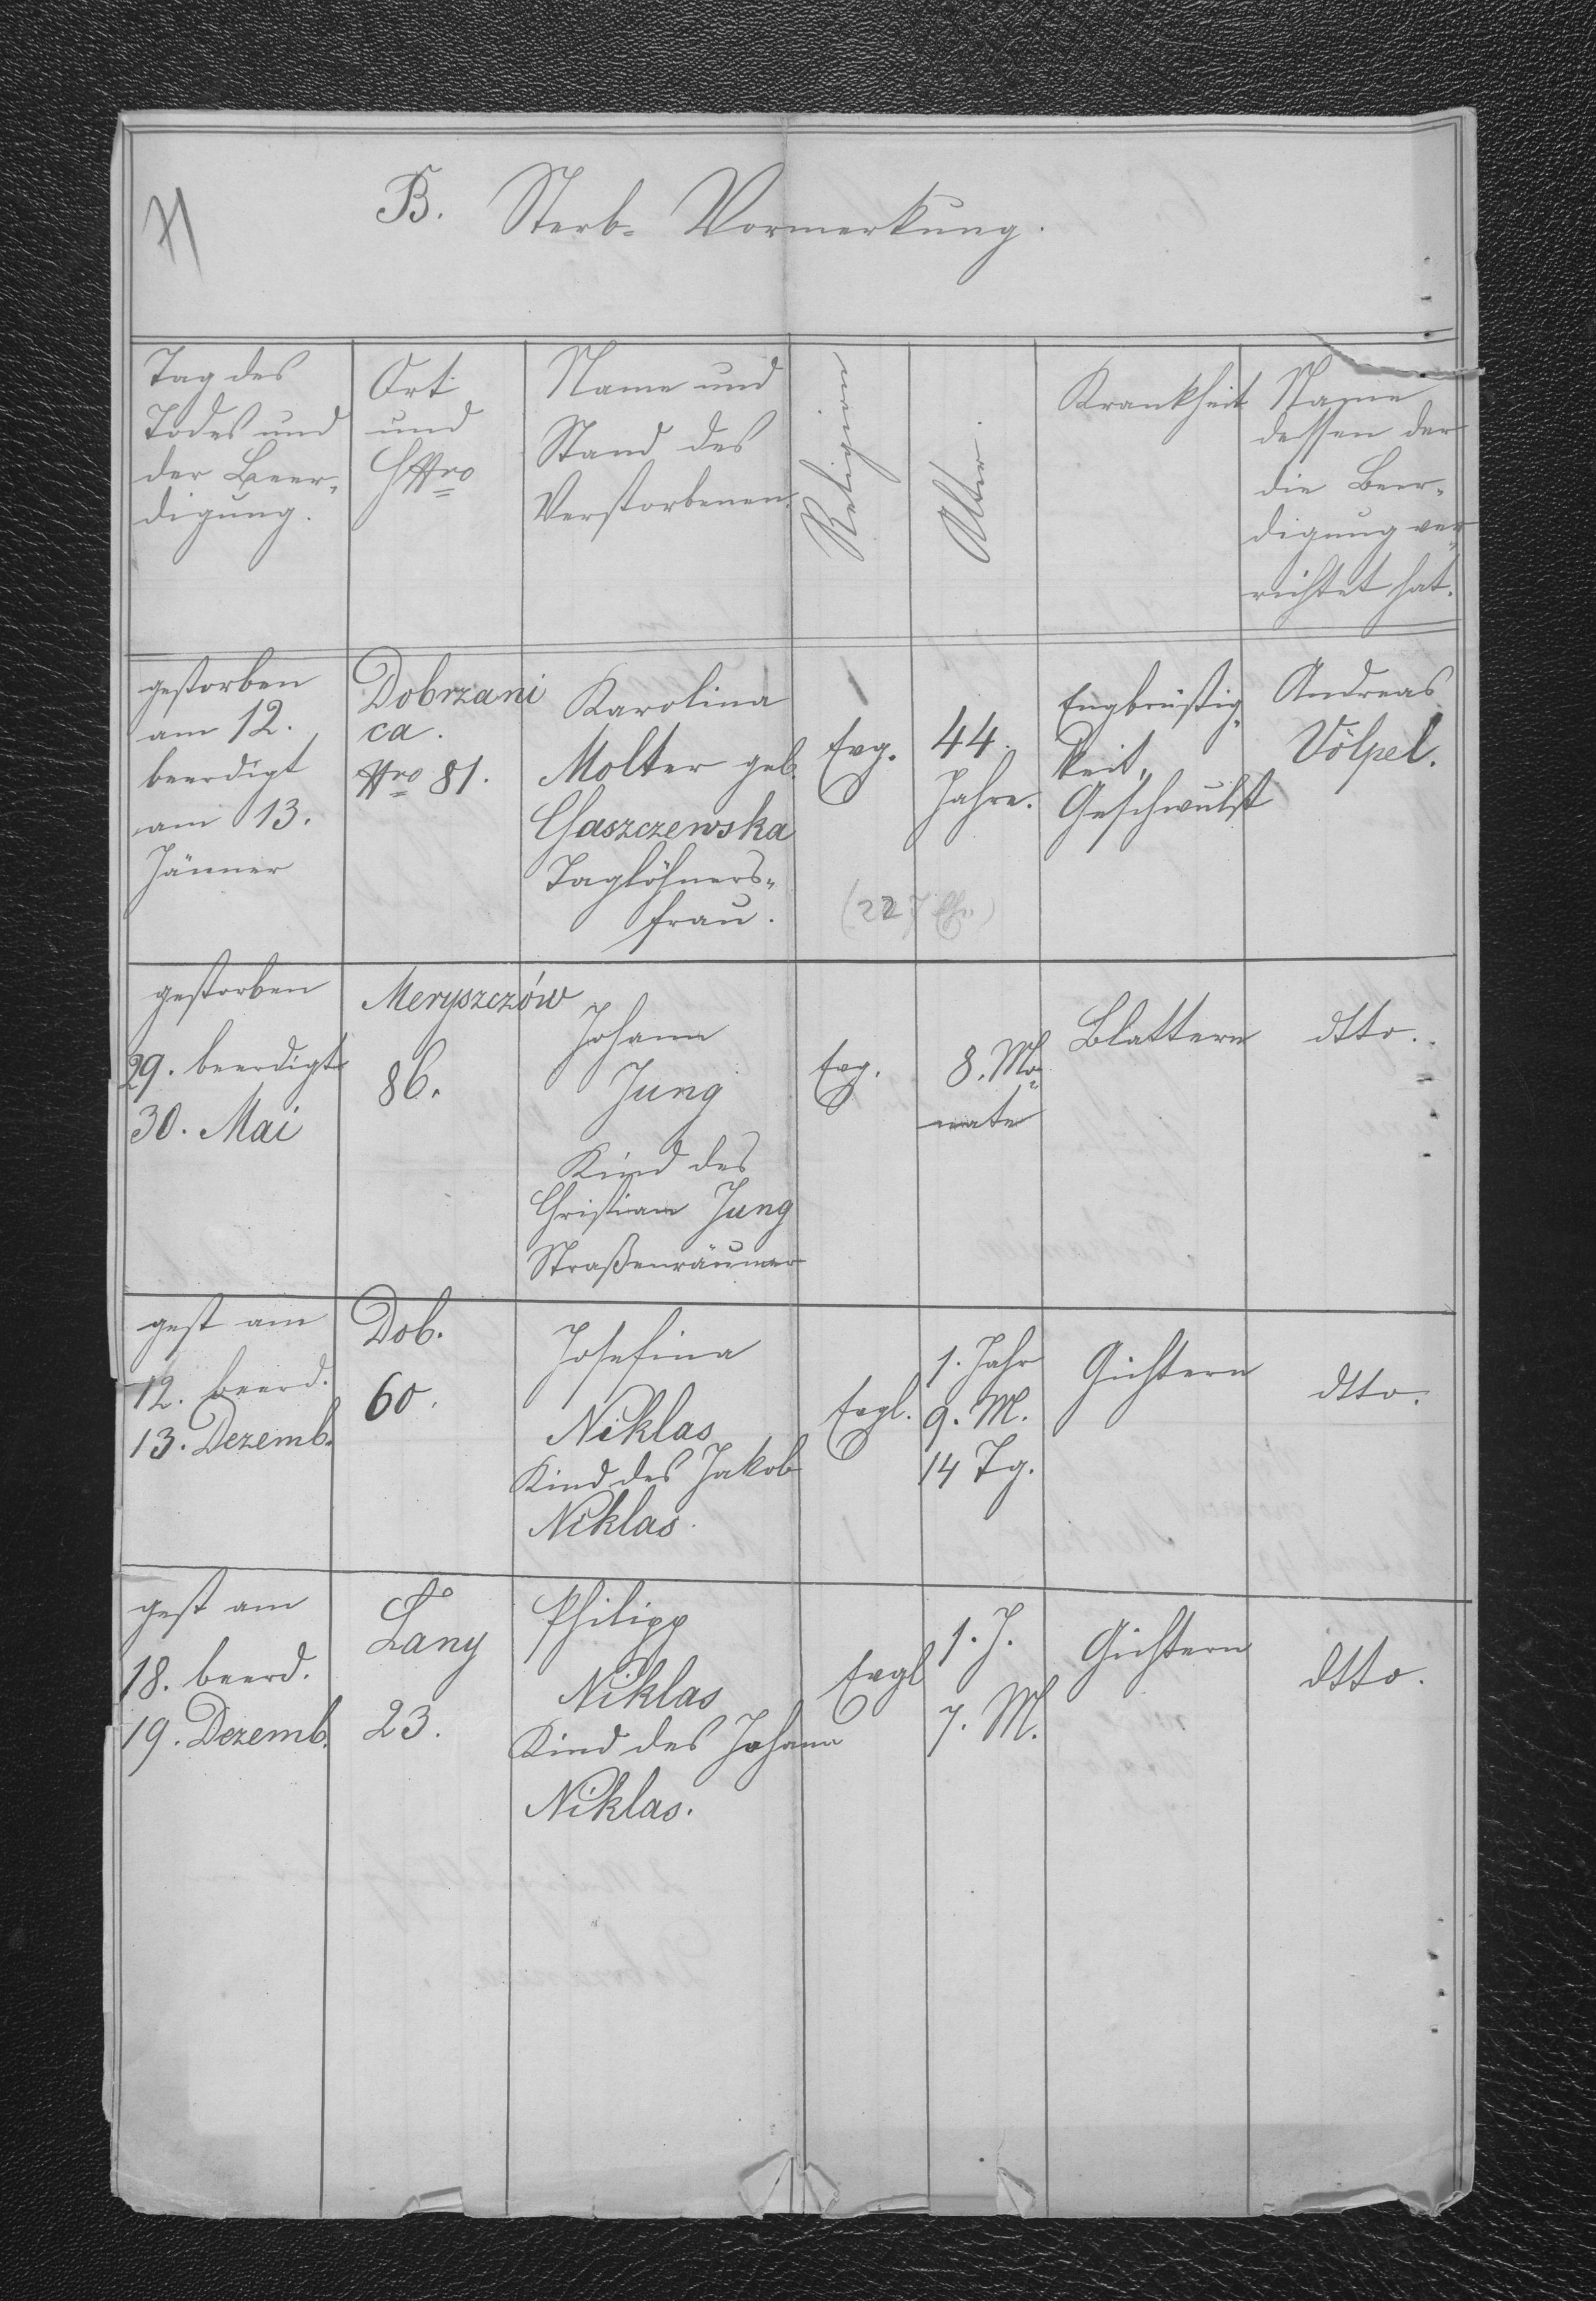 B. Sterb- Vormerkung.
Tag des
Todes und
der Beer-
digung.
Ort
und
HNro
Name und
Stand des
Verstorbenen.
Religion
Alter.
Krankheit
Name
dessen der
die Beer-
digung ver-
richtet hat.
gestorben
am 12.
beerdigt
am 13.
Jänner
Dobrzani
ca.
Nro 81.
Karolina
Molter geb.
Gaszczewska
Taglöhners-
frau.
Evg.
44.
Jahre.
Engbrüstig-
keit,
Geschwulst
Andreas
Völpel.
gestorben
29. beerdigt
30. Mai
Meryszczów
86.
Johann
Jung
Kind des
Christian Jung
Straßenräumer
Evg.
8. Mo-
nate
Blattern
dtto.
gest am
12. beerd.
13. Dezemb.
Dob.
60.
Josefina
Niklas
Kind des Jakob
Niklas.
Evgl.
1. Jahr
9. M.
14 Tg.
Gichtern
dtto.
gest am
18. beerd.
19. Dezemb.
Lany
23.
Philipp
Niklas
Kind des Johann
Niklas.
Evgl
1. J.
7. M.
Gichtern
dtto.